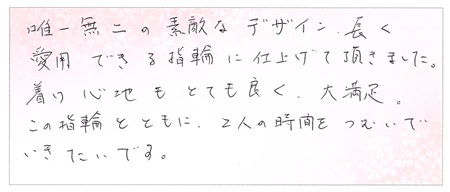 唯一無二の素敵なデザイン、長く
愛用できる指輪に仕上げて頂きました。
着け心地もとても良く、大満足。
この指輪とともに、2人の時間をつむいで
いきたいです。